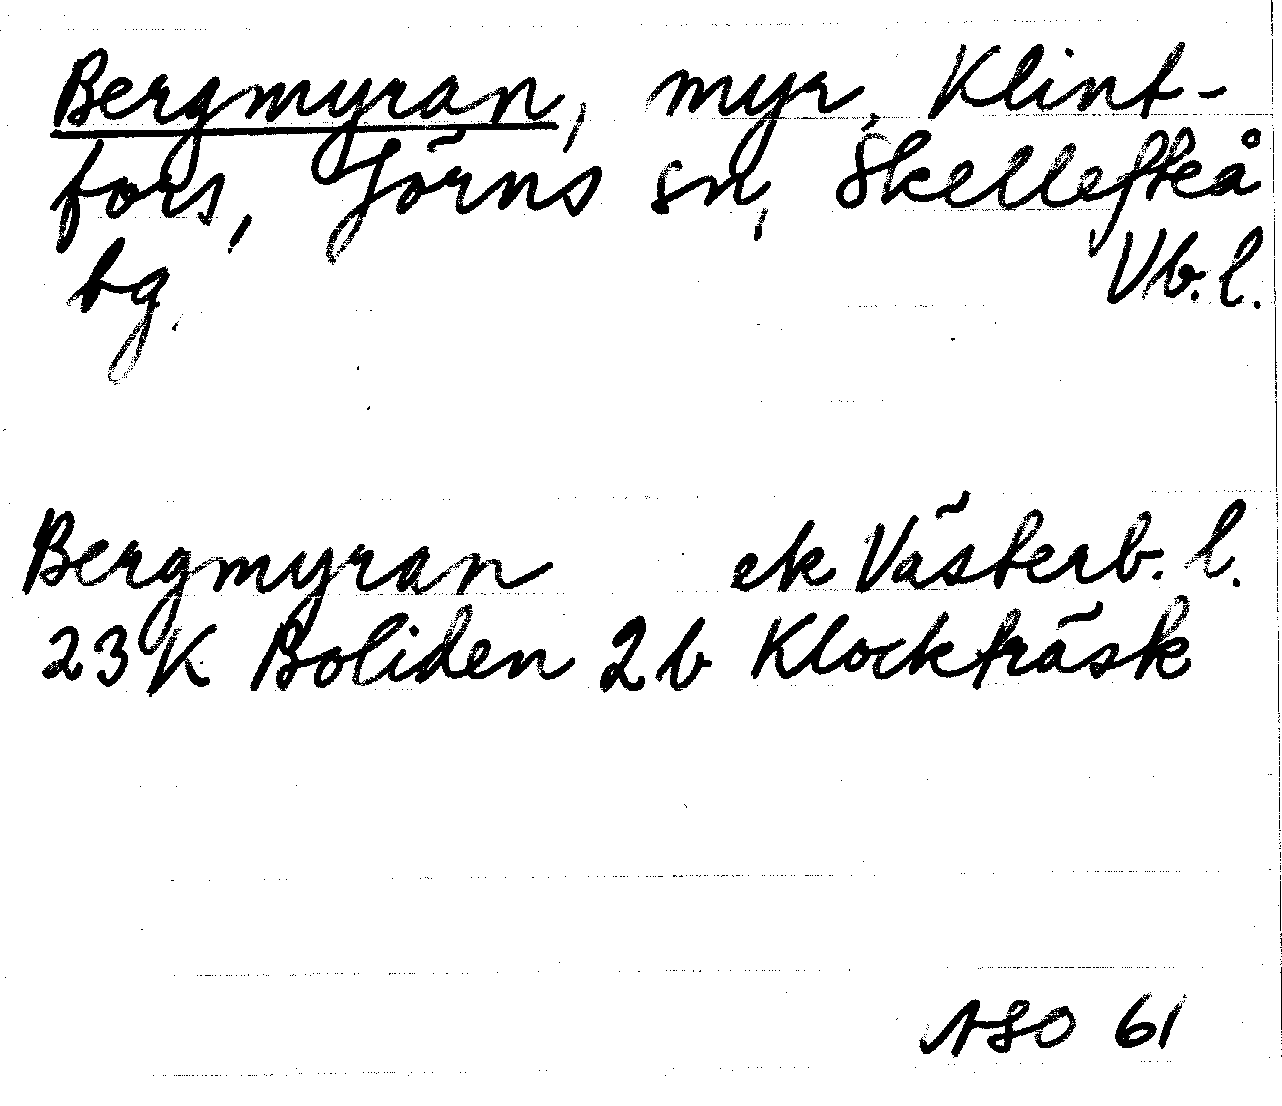 Bergmyran, myr, Klint-
fors, Jörns sn, Skellefteå
bg. Vb. l.
Bergmyran ek Västerb. l.
23 K Boliden 2 b Klockträsk
ASO 61